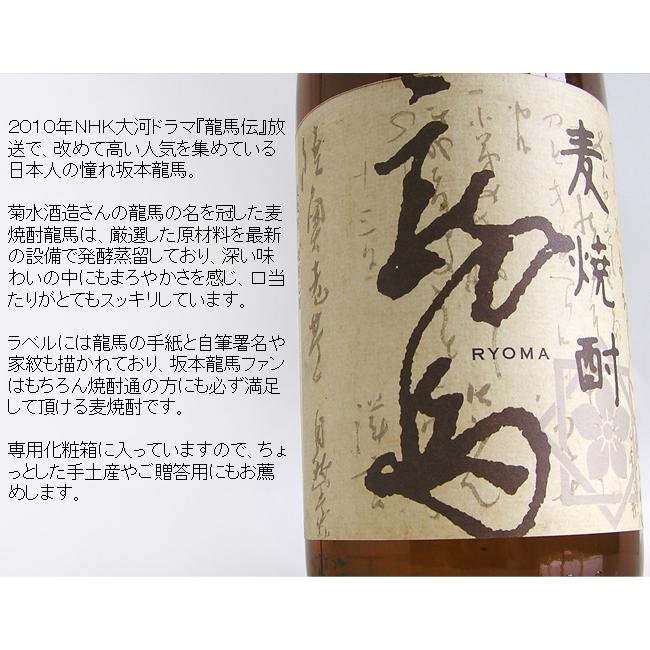 2010年NHK大河ドラマ『龍馬伝』放
送で、改めて高い人気を集めている
日本人の憧れ坂本龍馬。
菊水酒造さんの龍馬の名を冠した麦
焼酎龍馬は、厳選した原材料を最新
の設備で発酵蒸留しており、深い味
わいの中にもまろやかさを感じ、口当
たりがとてもスッキリしています。
ラベルには龍馬の手紙と自筆署名や
家紋も描かれており、坂本龍馬ファン
はもちろん焼酎通の方にも必ず満足
して頂ける麦焼酎です。
専用化粧箱に入っていますので、ちょ
っとした手土産やご贈答用にもお薦
めします。
麦焼酎
龍馬
RYOMA